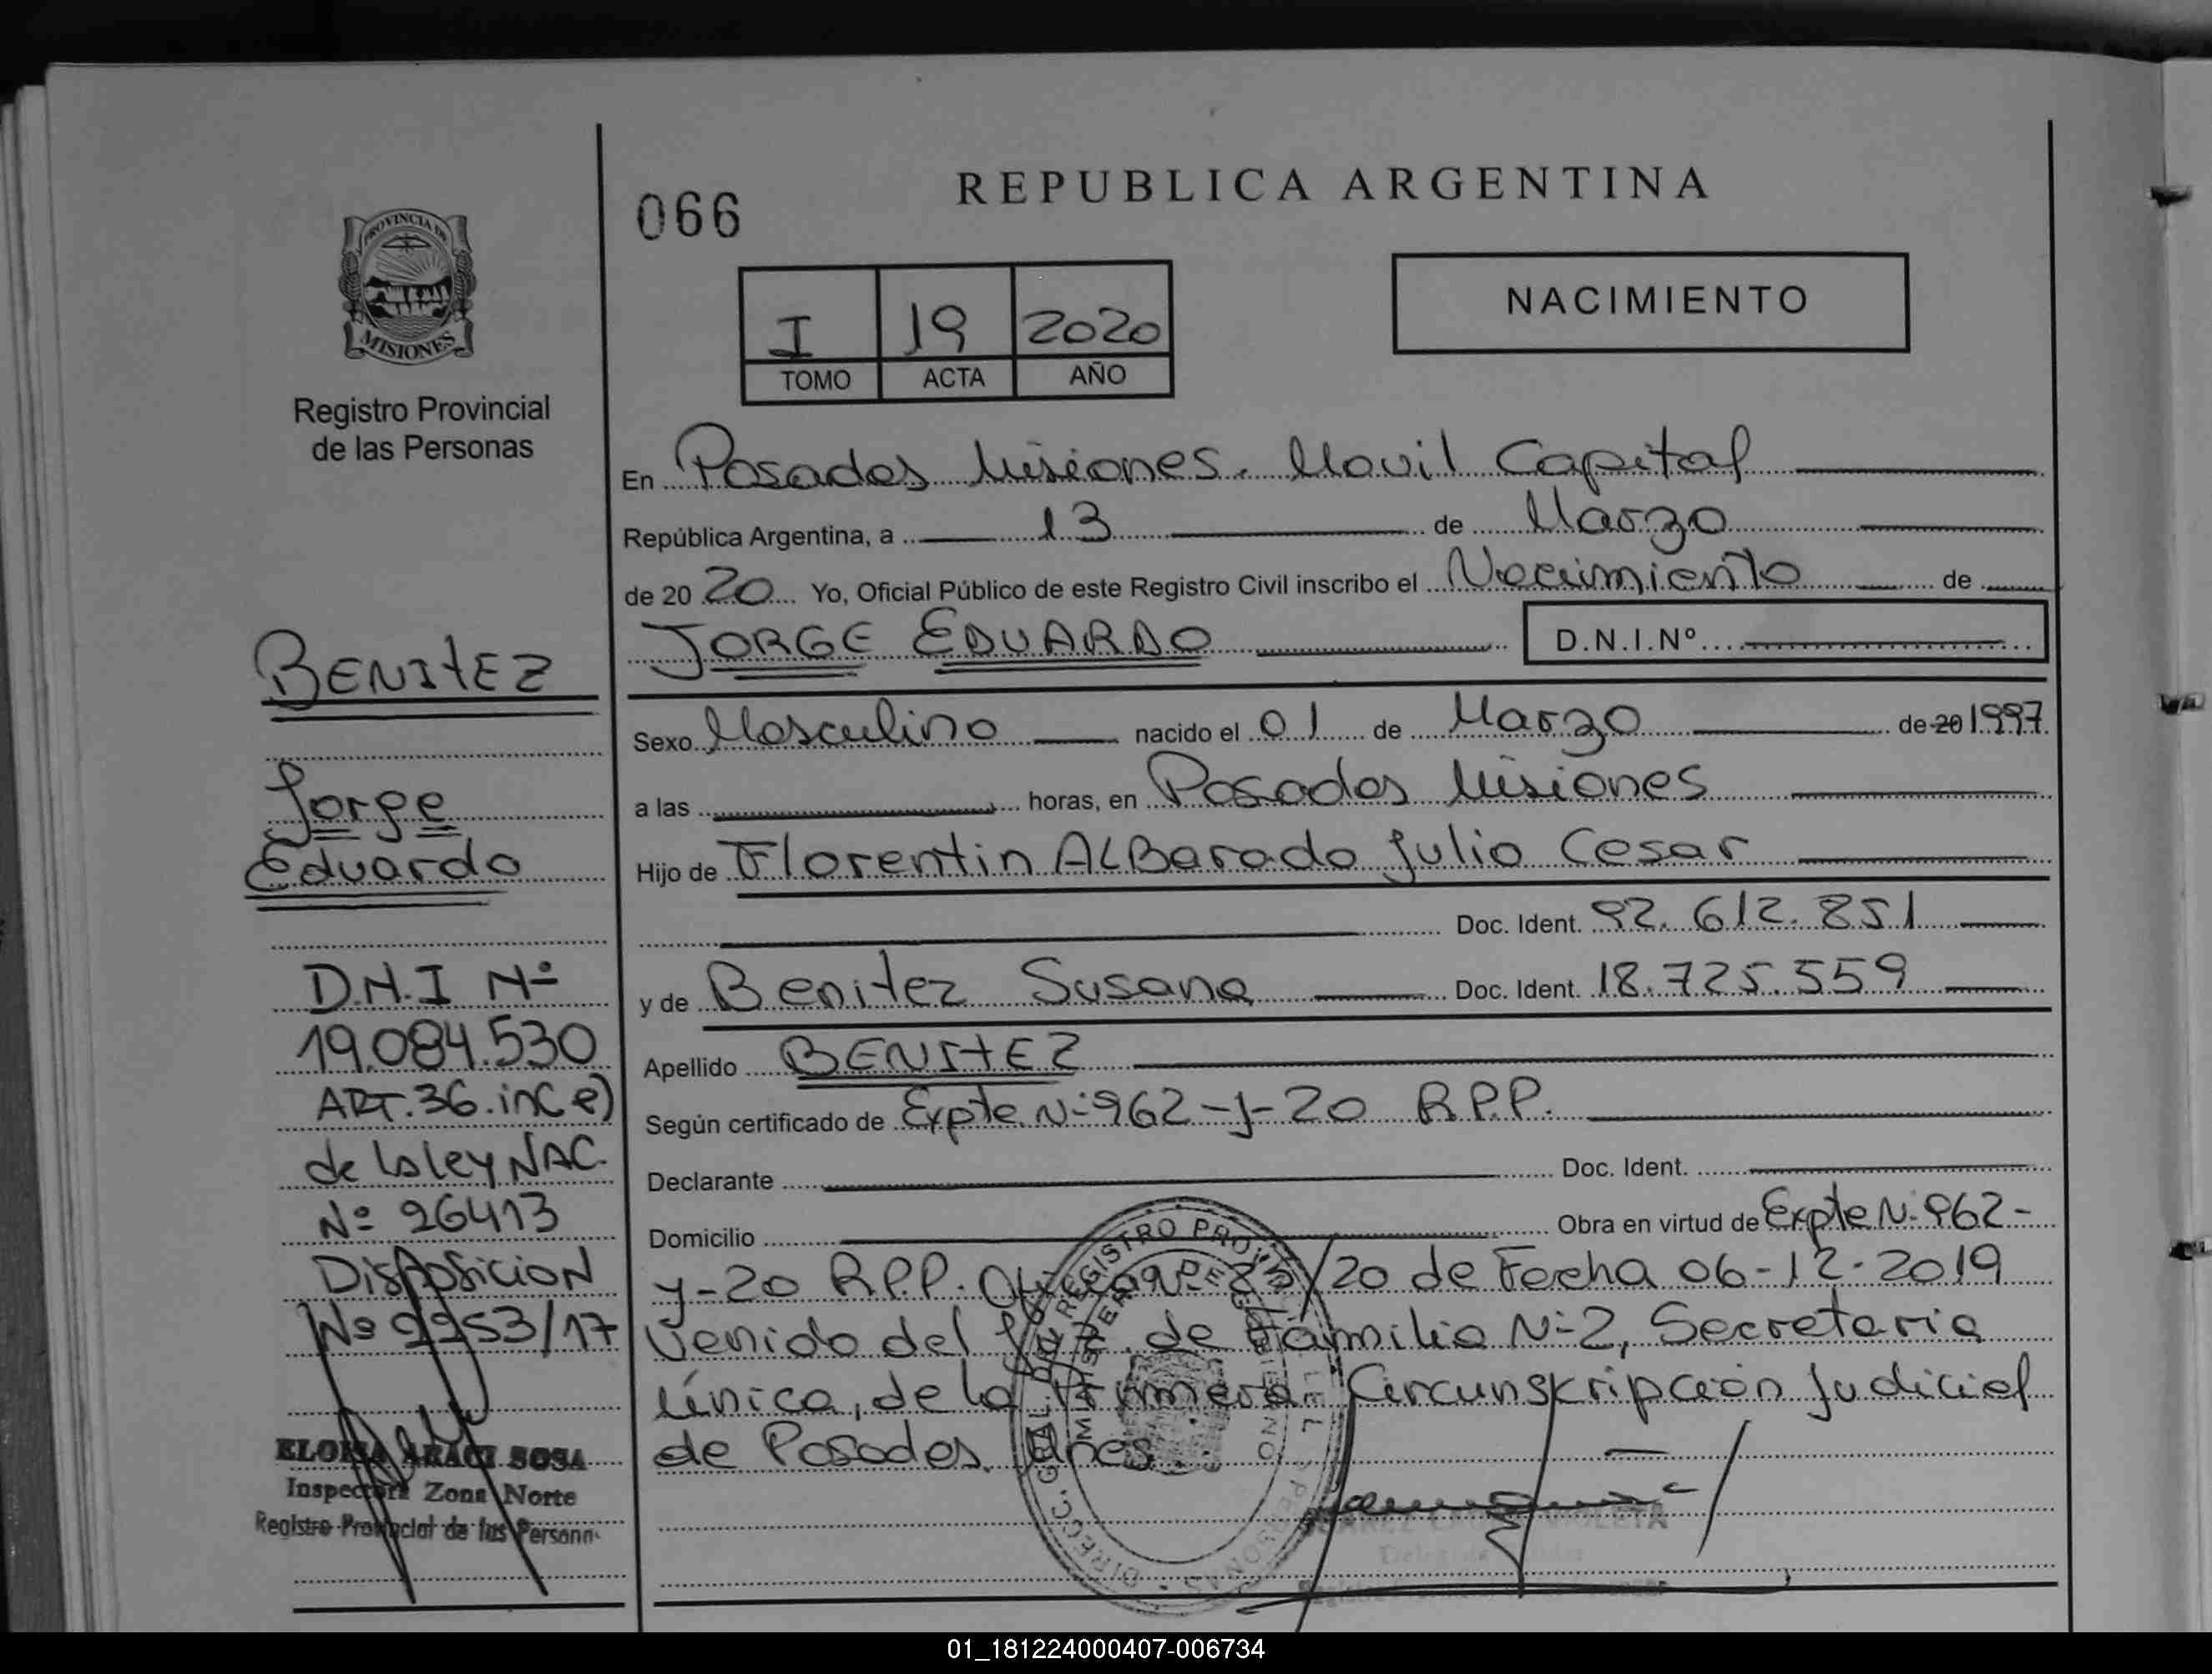 PROVINCIA DE
MISIONES
Registro Provincial
de las Personas
BENITEZ
Jorge
Eduardo
D.N.I Nº
19.084.530
ART.36.inC e)
de la ley NAC.
Nº 26413
Disposicion
Nº 2253/17
ELOISA ARACI SOSA
Inspectora Zona Norte
Registro Provincial de las Person
066
REPUBLICA ARGENTINA
I 19 2020
TOMO ACTA AÑO
NACIMIENTO
En Posadas Misiones. Movil Capital
República Argentina, a 13 de Marzo
de 20 20 Yo, Oficial Público de este Registro Civil inscribo el Nacimiento de
JORGE EDUARDO D.N.I.Nº
Sexo Masculino nacido el 01 de Marzo de 20 1997
a las horas, en Posadas Misiones
Hijo de Florentin ALBarado Julio Cesar
Doc. Ident. 92.612.851
y de Benitez Susana Doc. Ident. 18.725.559
Apellido BENITEZ
Según certificado de Expte Nº 962-y-20 R.P.P.
Declarante Doc. Ident.
Domicilio Obra en virtud de Expte Nº 962-
y-20 R.P.P. /20 de Fecha 06-12-2019
venido del de Familia Nº 2, Secretaria
única, de la Primera Circunskripción Judicial
de Posadas, Mnes
DIRECC. GRAL. DEL REGISTRO PROVINCIAL DE LAS PERSONAS
01_181224000407-006734